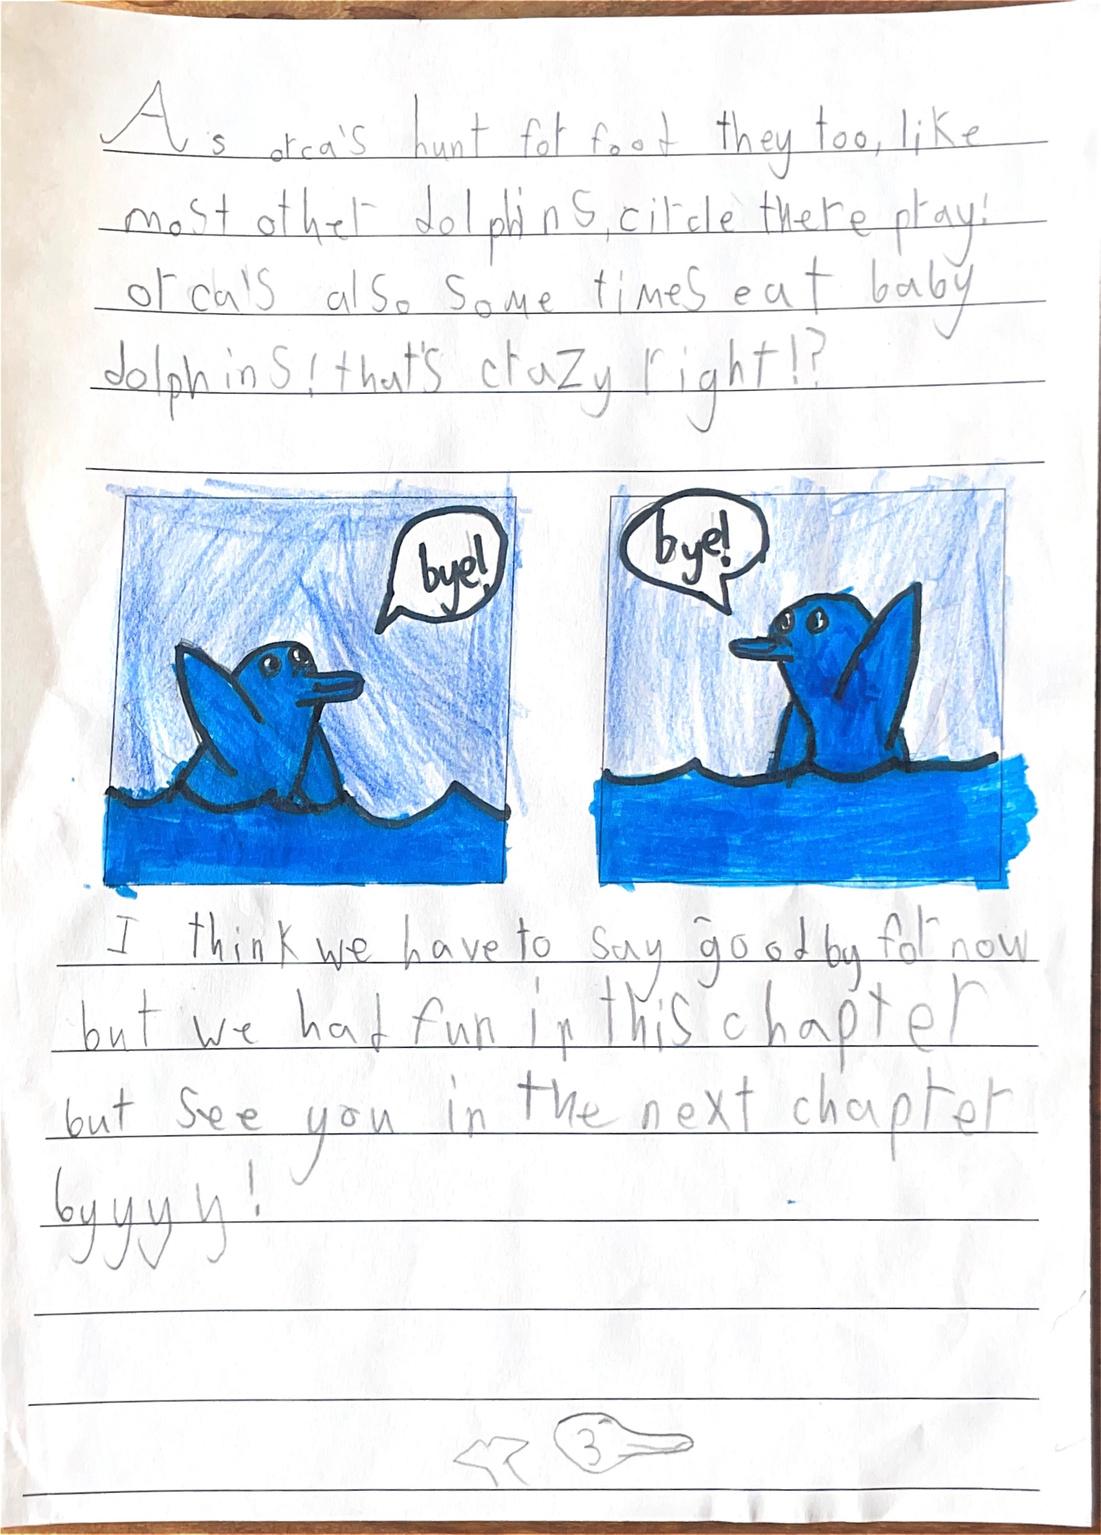 As orca's hunt for food they too, like
most other dolphins, circle there pray!
orca's also some times eat baby
dolphins! that's crazy right!?
bye!
bye!
I think we have to say goodby for now
but we had fun in this chapter
but see you in the next chapter
byyyy!
3